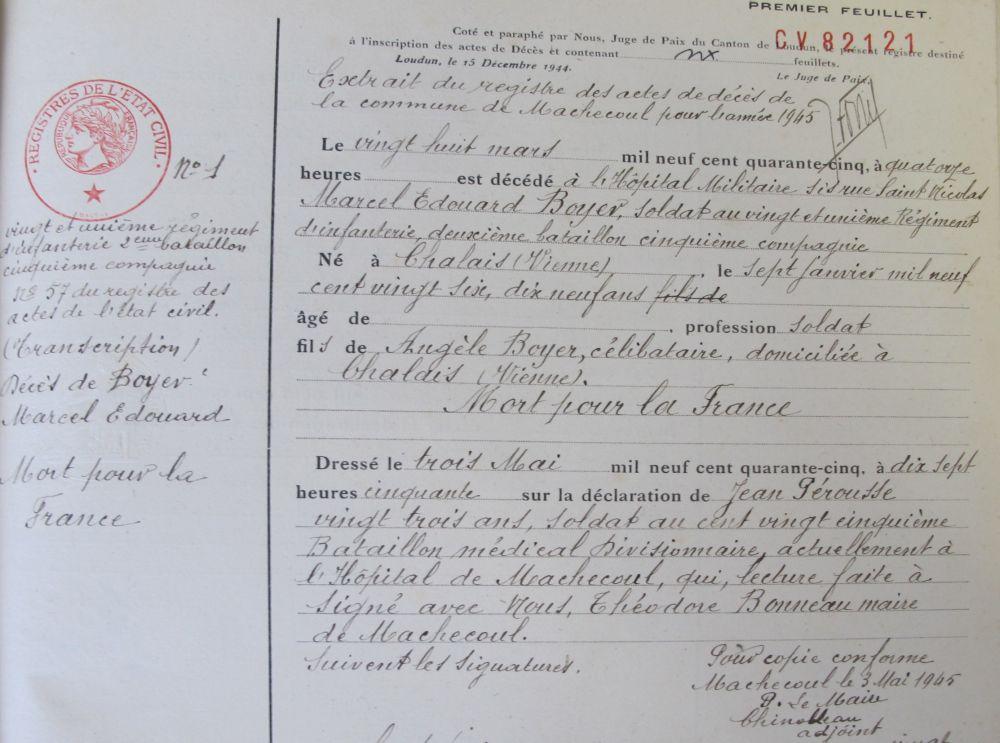 PREMIER FEUILLET.
CV 82121
Coté et paraphé par Nous, Juge de Paix du Canton de Loudun, le présent registre destiné
à l'inscription des actes de Décès et contenant feuillets.
Loudun, le 15 Décembre 1944.
Le Juge de Paix,
Extrait du registre des actes de décès de
la commune de Machecoul pour l'année 1945
REGISTRES DE L'ÉTAT CIVIL
RÉPUBLIQUE FRANÇAISE
N° 1
vingt et unième régiment
d'infanterie 2eme bataillon
cinquième compagnie
N° 57 du registre des
actes de l'état civil.
(Transcription)
Décès de Boyer
Marcel Edouard
Mort pour la
France
Le vingt huit mars mil neuf cent quarante-cinq, à quatorze
heures est décédé à l'Hôpital Militaire sis rue Saint Nicolas
Marcel Edouard Boyer, soldat au vingt et unième Régiment
d'infanterie, deuxième bataillon cinquième compagnie
Né à Chalais (Vienne), , le sept janvier mil neuf
cent vingt six, dix neuf ans fils de
âgé de , profession soldat
fils de Angèle Boyer, célibataire, domiciliée à
Chalais (Vienne).
Mort pour la France
Dressé le trois Mai mil neuf cent quarante-cinq, à dix sept
heures cinquante sur la déclaration de Jean Pérousse
vingt trois ans, soldat au cent vingt cinquième
Bataillon médical Divisionnaire, actuellement à
l'Hôpital de Machecoul, qui, lecture faite à
signé avec Nous, Théodore Bonneau maire
de Machecoul.
Suivent les signatures.
Pour copie conforme
Machecoul le 3 Mai 1945
P. Le Maire
adjoint